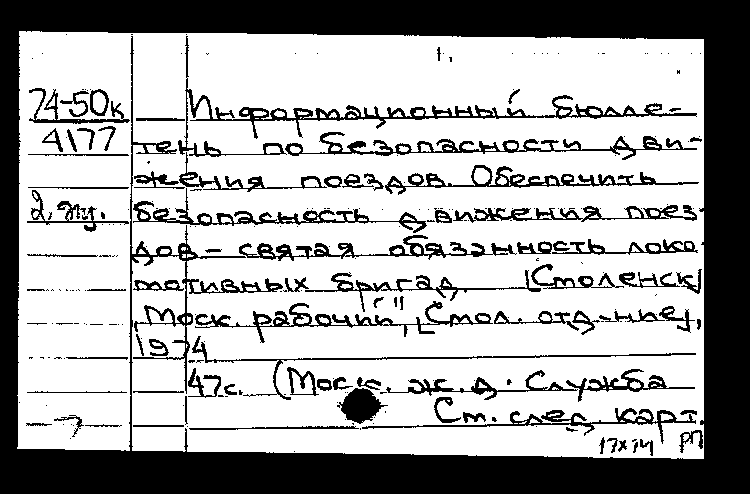 1.
74-50к Информационный бюлле-
4177 тень по безопасности дви-
жения поездов. Обеспечить
2. эж. безопасность движения поез-
дов – святая обязанность локо-
мотивных бригад. [Смоленск]
"Моск. рабочий", [Смол. отд-ние],
1974.
47с. (Моск. ж.д. Служба
См. след. карт.
17X74 РП